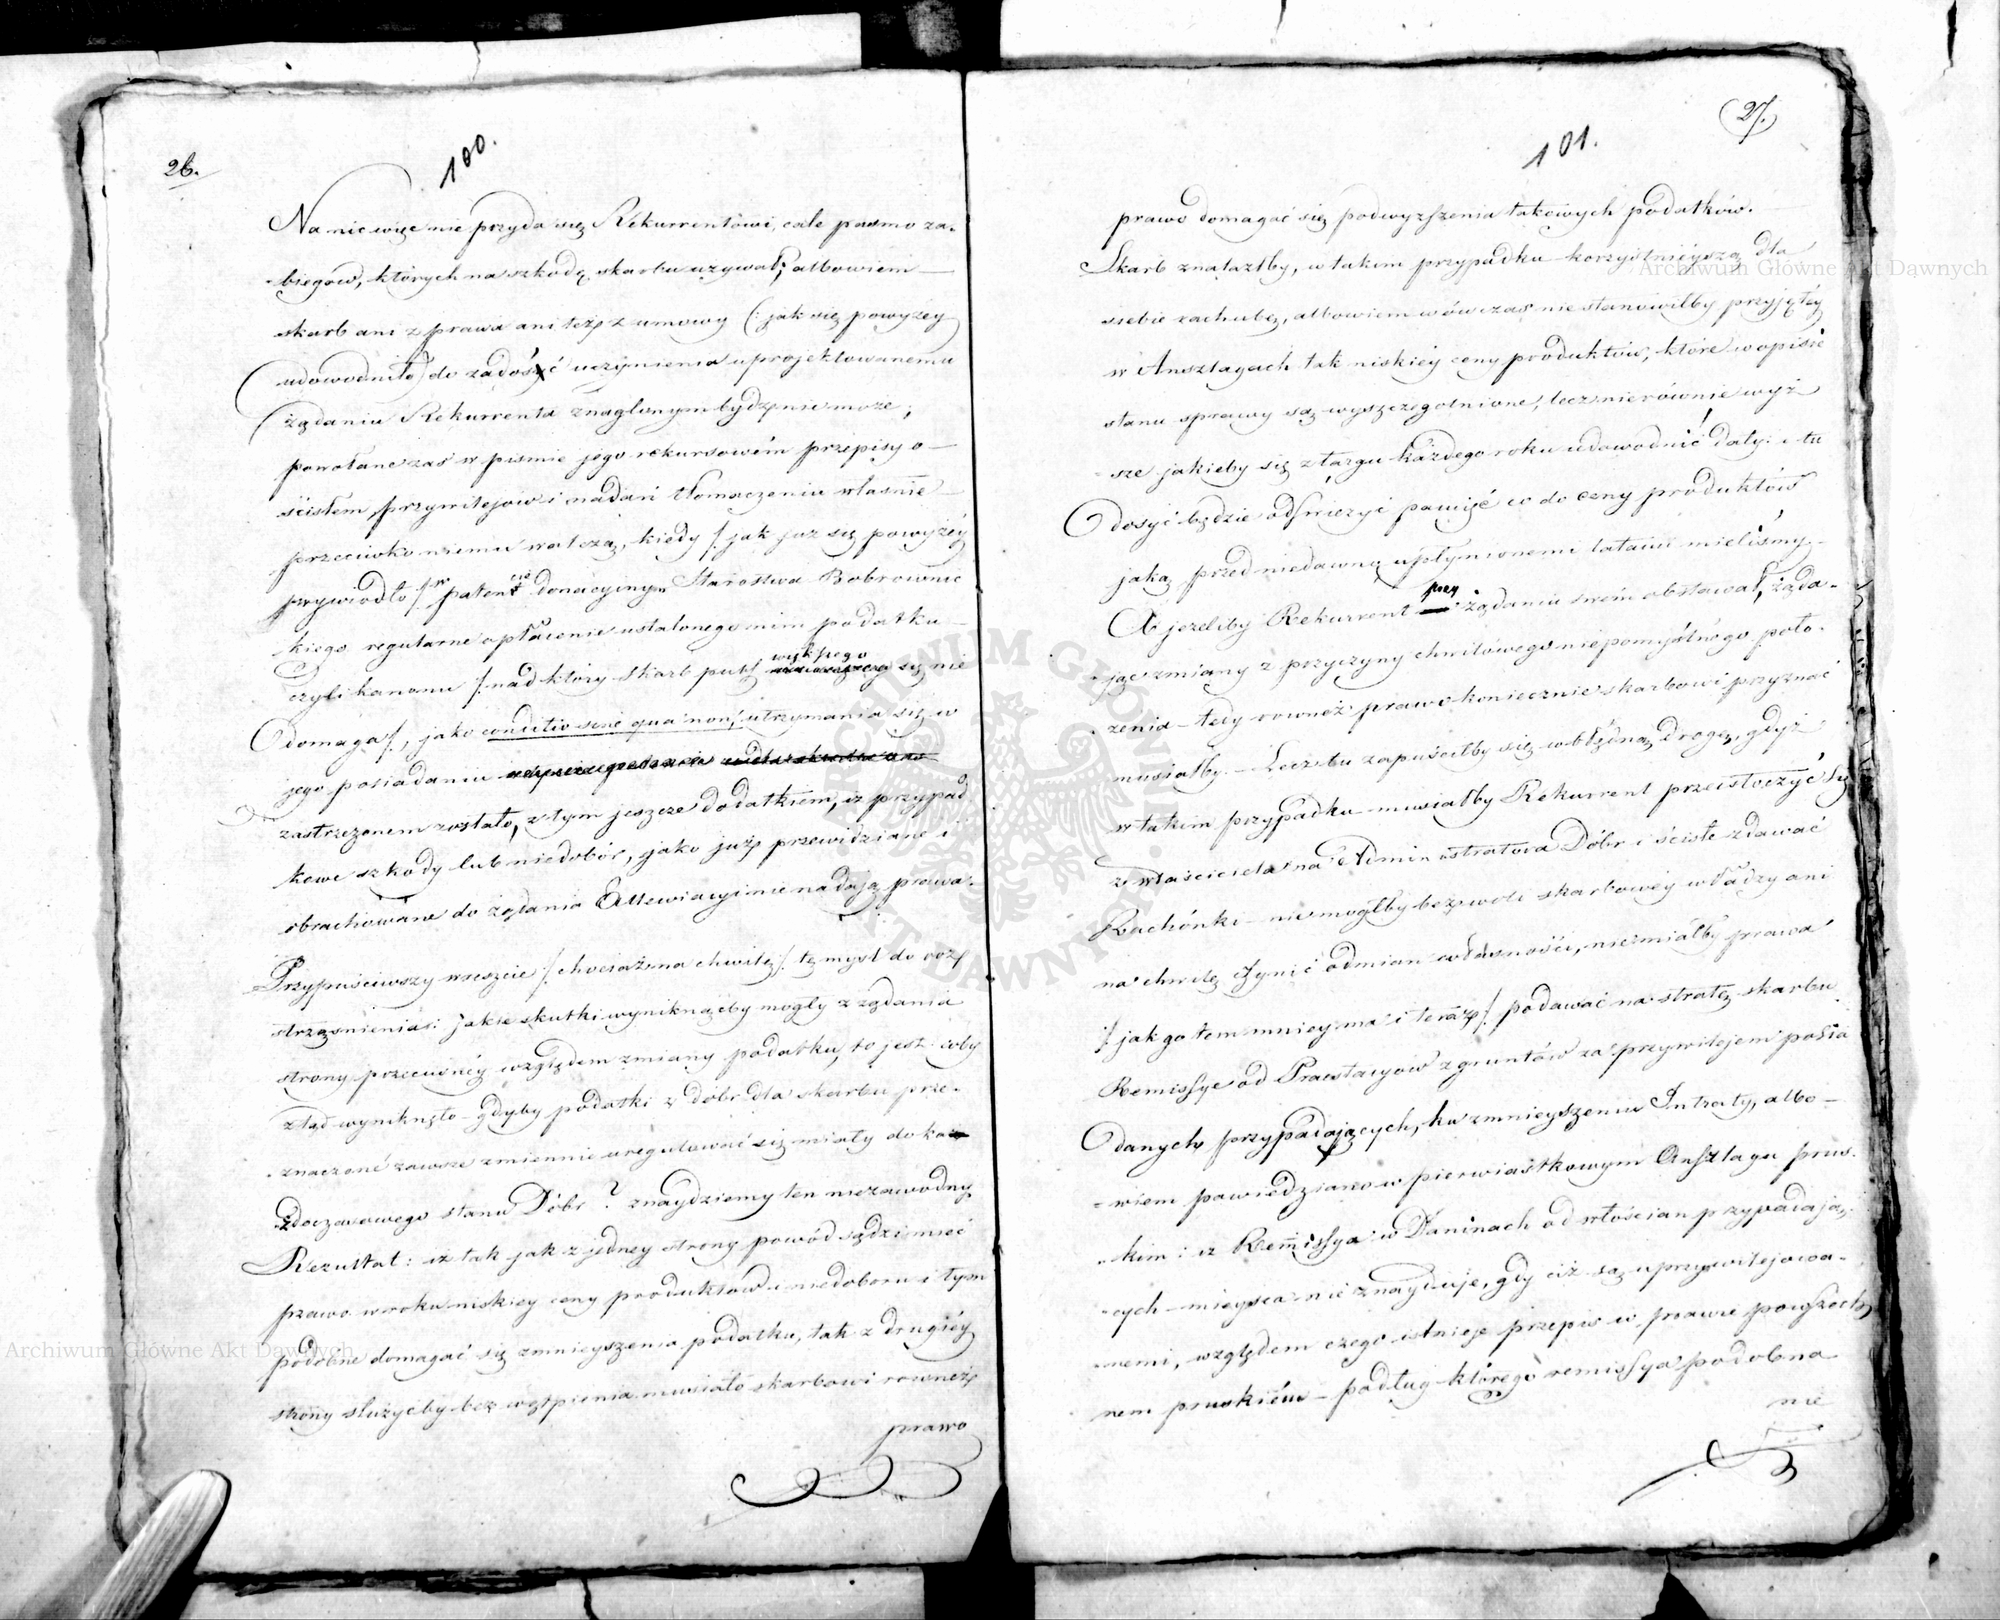 26.
100.
Na nic więc nie przyda się Rekurrentowi, całe pasmo za-
-biegów, których na szkodę skarbu używał; albowiem —
skarb ani z prawa ani też z umowy (: jak się powyżey
udowodniło) do zadość uczynienia uprojektowanemu
żądaniu Rekurrenta znaglonym bydź nie może;
powołane zaś w piśmie jego rekursowém przepisy o —
ścisłem przywilejow i nadań tłomaczeniu własnie —
przeciwko niemu walczą, kiedy /: jak juz się powyżéy
przywiodło :/ w patencie donacyjnym Starostwa Bobrownic
kiego regularne opłacenie ustalonego nim podatku —
czyli kanonu /: nad który skarb pub: większego się nie
domaga :/, jako conditio sine qua non, utrzymania się w
jego posiadaniu
zastrzeżonem zostało, z tym jeszcze dodatkiem, iz przypad
kowe szkody lub niedobór, jako już przewidziane i
obrachowane do żądania Allewiacyi nie nadają prawa.
Przypuściwszy wreszcie /: chociaż na chwilę :/ tę mysl do roz
strząśnienia: jakie skutki wyniknąćby mogły z żądania
strony przeciwnéy względem zmiany podatku, to jest: coby
ztąd wyniknęło gdyby podatki z dóbr dla skarbu prze-
-znaczone zawsze zmiennie uregulować się miały do każ
doczasowego stanu Dóbr? znaydziemy ten niezawodny
Rezultat: iż tak jak z jedney strony powód sądzi mieć
prawo w roku niskiey ceny produktów i niedoboru i tym
podobne domagać się zmnieyszenia podatku, tak z drugiéy
strony służyćby bez wątpienia musiało skarbowi rownież
prawo
27.
101.
prawo domagać się podwyzszenia takowych podatków. —
Skarb znalazłby, w takim przypadku korzystnieyszą dla
siebie rachubę, albowiem wówczas nie stanowiłby przyjętéy
w Ansztagach tak niskiéy ceny produktów, które w opisie
stanu sprawy są wyszczegolnione, lecz nierównie wyż
-sze jakieby się z targu każdego roku udowodnić dały: i tu
dosyć będzie odświeżyć pamięć co do ceny produktów
jaką przed niedawno upłynionemi latami mieliśmy.—
A jezeliby Rekurrent przy żądaniu swém obstawał, żąda-
-jąc zmiany z przyczyny chwilowego niepomyślnego poło-
-zenia — tedy rownéż prawo koniecznie skarbowi przyznać
musiałby. — Lecz tu zapuściłby się w błędną drogę, gdyż
w takim przypadku musiałby Rekurrent przeistoczyć się
z właściciela na Administratora Dóbr i ściśle zdawać
Rachónki — nie mógłby bez woli skarbowéy władzy ani
na chwilę czynić odmian własności, nie miałby prawa
/: jak go tem mniey ma i teraz :/ podawać na stratę skarbu
Remissye od Praestacyów z gruntów za przywilejem posia
danych przypadających, ku zmnieyszeniu Intraty, albo —
-wiem powiedziano w pierwiastkowym Ansztagu prus-
-kim: iz Remissya w Daninach od włościan przypadają-
-cych — mieysca nie znayduje, gdy ciż są uprzywilejowa-
-nemi, względem czego istnieje przepis w prawie powszech
nem pruskiém — podług którego remissya podobna
nie